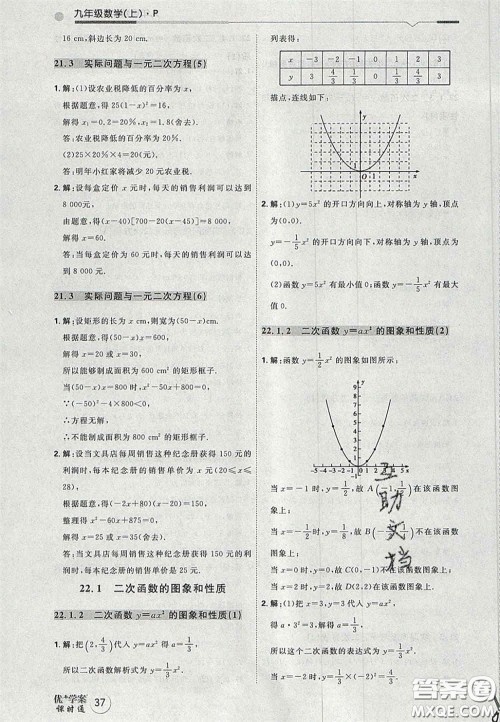 九年级数学(上)·P
16 cm,斜边长为 20 cm.
21.3 实际问题与一元二次方程(5)
1. 解:(1)设农业税降低的百分率为 x,
根据题意,得 25(1-x)²=16,
解得 x₁=0.2,x₂=1.8(舍去).
答:农业税降低的百分率为 20%.
(2)25×20%×4=20(元).
答:明年小红家将减少 20 元农业税.
2. 解:设每盒定价 x 元时,每天的销售利润可以达到
8 000 元,
由题意,得(x-40)[700-20(x-45)]=8 000,
解得 x=60.
答:当每盒定价为 60 元时,每天的销售利润可以达
到 8 000 元.
21.3 实际问题与一元二次方程(6)
1. 解:设矩形的长为 x cm,则宽为(50-x)cm,
根据题意,得 x(50-x)=600,
解得 x₁=20,x₂=30.
所以能制成面积为 600 cm² 的矩形框子.
当(50-x)·x=800 时,x²-50x+800=0,
∵(-50)²-4×800<0,
∴方程无解.
∴不能制成面积为 800 cm² 的矩形框子.
2. 解:设当文具店每周销售这种纪念册获得 150 元的
利润时,每本纪念册的销售单价为 x 元(20≤x≤
28).
根据题意,得(x-20)(-2x+80)=150,
整理得 x²-60x+875=0,
解得 x₁=25,x₂=35(舍去).
答:当文具店每周销售这种纪念册获得 150 元的利
润时,每本纪念册的销售单价是 25 元.
22.1 二次函数的图象和性质
22.1.2 二次函数 y=ax² 的图象和性质(1)
1. 解:把(2,4/3)代入得 a=1/3,
所以二次函数解析式为 y=1/3x².
优+学案
课时通
37
列表得:
x -3 -2 -1 0 1 2 3
y 3 4/3 1/3 0 1/3 4/3 3
描点,连线如下:
y
O 1 x
2. 解:(1)y=5x² 的开口方向向上,对称轴为 y 轴,顶点
为(0,0).
y=-1/5x² 的开口方向向下,对称轴为 y 轴,顶点
为(0,0).
(2)函数 y=5x² 有最小值 0;函数 y=-1/5x² 有最
大值 0.
22.1.2 二次函数 y=ax² 的图象和性质(2)
1. 解:函数 y=1/2x² 的图象如图所示,
y
9
8
7
6
5
4
3
2
1
-5 -4 -3 -2 -1 0 1 2 3 4 5 x
当 x=-1 时,y=1/2,故 A(-1,1/2)在该函数图
象上;
当 x=-1/2 时,y=1/8,故 B(-1/2,1)不在该函数
图象上;
当 x=0 时,y=0,故 C(0,-1)不在该函数图象上;
当 x=-2 时,y=2,故 D(-2,0)不在该函数图象上.
2. 解:(1)把 x=3,y=3 代入得
a·3²=3,解得 a=1/3,
所以这个二次函数的表达式为 y=1/3x².
(2)当 x=-3 时,y=1/3x²=3,
互助文档
答案圈
MXQE.COM